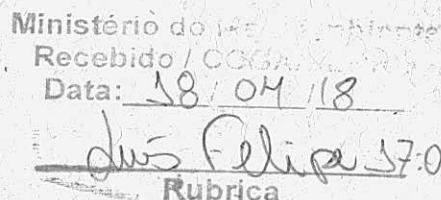 Ministério do
Recebido /
Data: 18/04/18
Luis Felipe 17:0
Rubrica